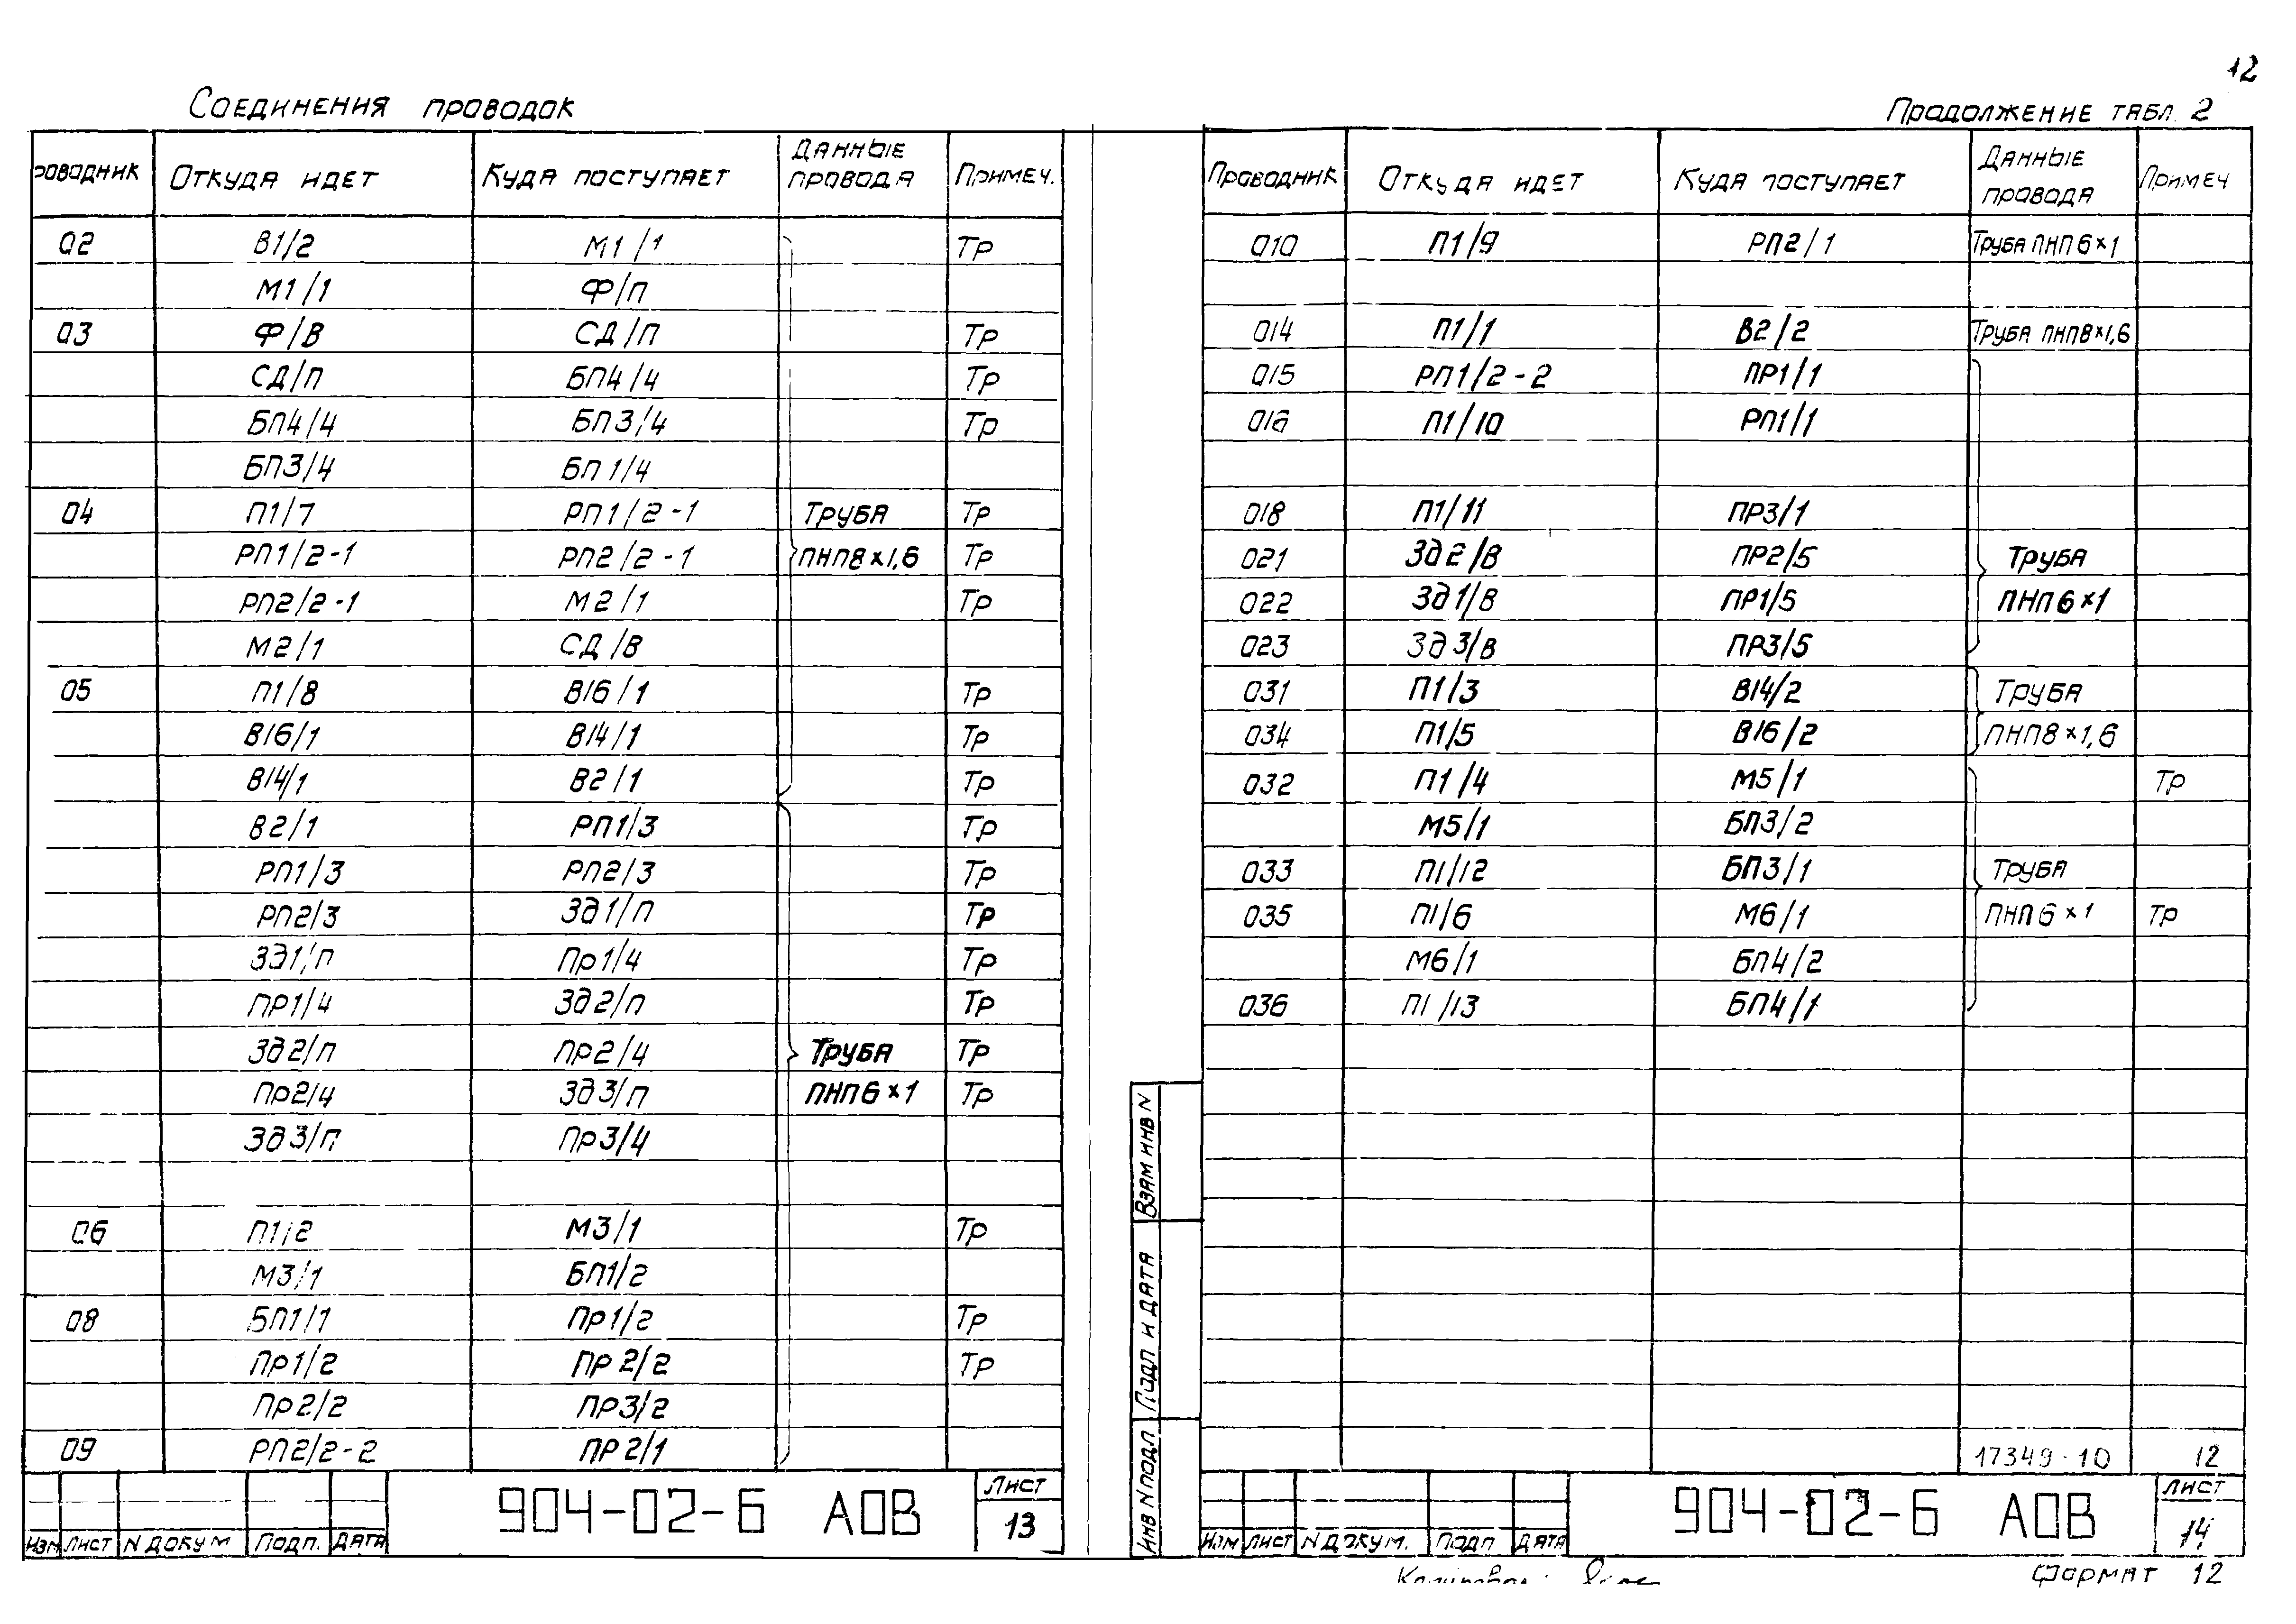 12
Соединения проводок
роводник Откуда идет Куда поступает Данные провода Примеч.
02 В1/2 М1/1 Тр
М1/1 Ф/П
03 Ф/В СД/П Тр
СД/П БП4/4 Тр
БП4/4 БП3/4 Тр
БП3/4 БП1/4
04 П1/7 РП1/2-1 Труба Тр
РП1/2-1 РП2/2-1 ПНП8×1,6 Тр
РП2/2-1 М2/1 Тр
М2/1 СД/В
05 П1/8 В16/1 Тр
В16/1 В14/1 Тр
В14/1 В2/1 Тр
В2/1 РП1/3 Тр
РП1/3 РП2/3 Тр
РП2/3 Зд1/П Тр
Зд1/П Пр1/4 Тр
ПР1/4 Зд2/П Тр
Зд2/П Пр2/4 Труба Тр
Пр2/4 Зд3/П ПНП6×1 Тр
Зд3/П Пр3/4
06 П1/2 М3/1 Тр
М3/1 БП1/2
08 БП1/1 Пр1/2 Тр
Пр1/2 ПР2/2 Тр
Пр2/2 ПР3/2
09 РП2/2-2 ПР2/1
Изм Лист N докум Подп. Дата
904-02-6 АОВ
Лист
13
Продолжение табл. 2
Проводник Откуда идет Куда поступает Данные провода Примеч
010 П1/9 РП2/1 Труба ПНП6×1
014 П1/1 В2/2 Труба ПНП8×1,6
015 РП1/2-2 ПР1/1
016 П1/10 РП1/1
018 П1/11 ПР3/1
021 Зд2/В ПР2/5 Труба
022 Зд1/В ПР1/5 ПНП6×1
023 Зд3/В ПР3/5
031 П1/3 В14/2 Труба
034 П1/5 В16/2 ПНП8×1,6
032 П1/4 М5/1 Тр
М5/1 БП3/2
033 П1/12 БП3/1 Труба
035 П1/6 М6/1 ПНП6×1 Тр
М6/1 БП4/2
036 П1/13 БП4/1
17349-10 12
Взам инв N
Подп и дата
Инв N подл
Изм Лист N докум. Подп Дата
904-02-6 АОВ
Лист
14
Копировал:
Формат 12